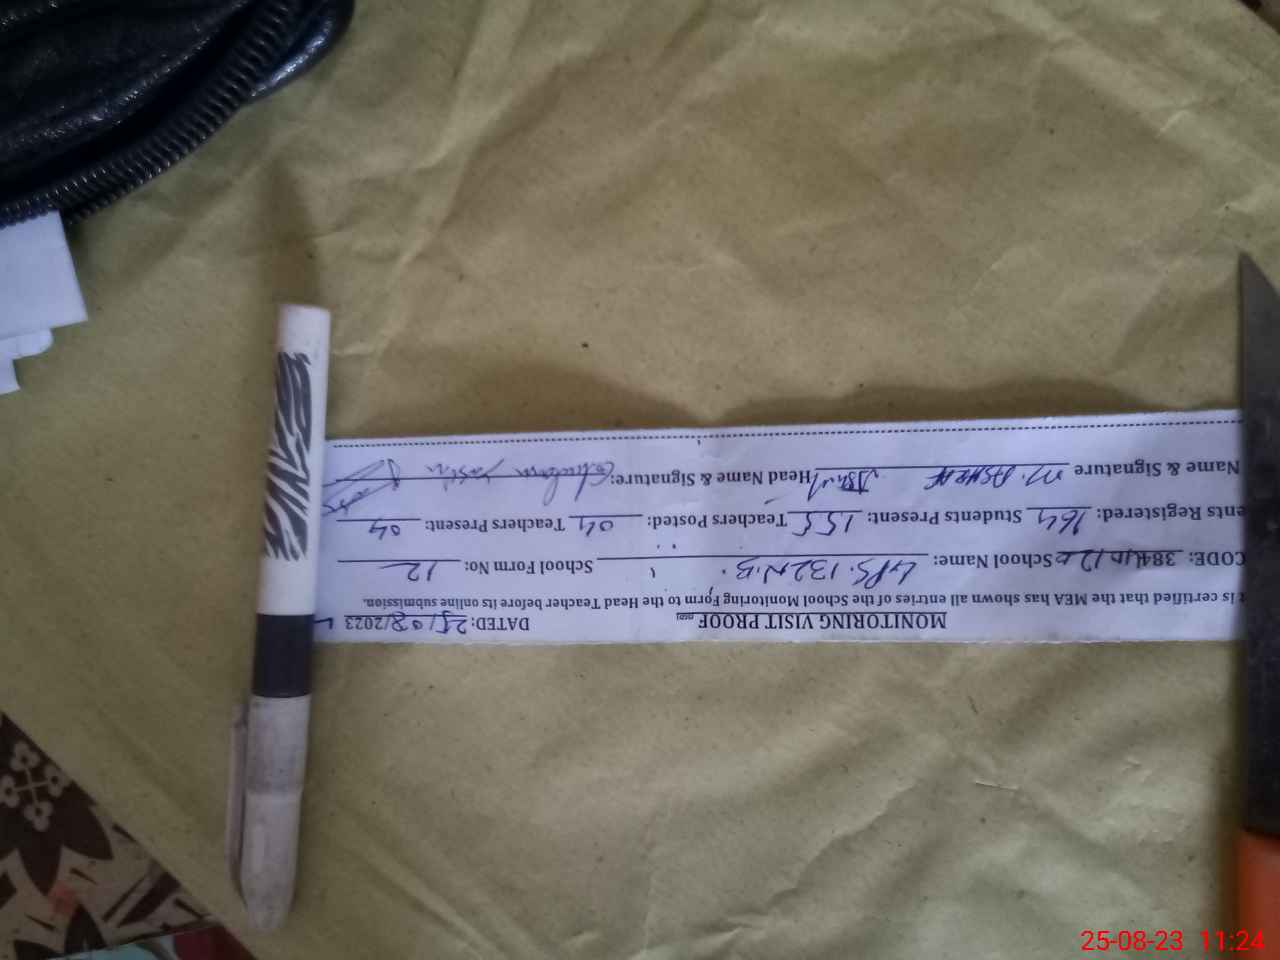 MONITORING VISIT PROOF DATED: 25/08/2023
t is certified that the MEA has shown all entries of the School Monitoring Form to the Head Teacher before its online submission.
CODE: School Name: GPS. 132 N.B. School Form No: 12
ents Registered: 164 Students Present: 155 Teachers Posted: 04 Teachers Present: 04
Name & Signature M. ASHRAF Head Name & Signature: Ghulam Yasin
25-08-23 11:24